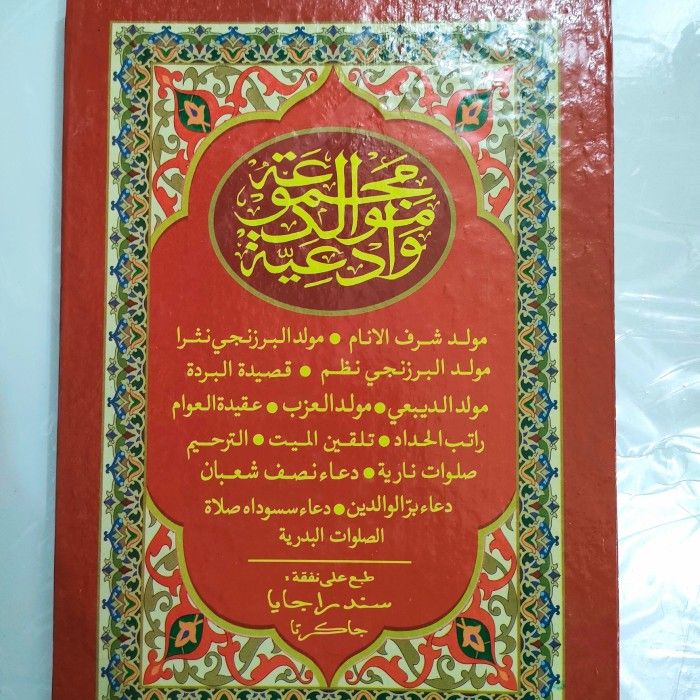 مجموعة
موالد
وادعية
مولد شرف الانام • مولد البرزنجي نثرا
مولد البرزنجي نظم • قصيدة البردة
مولد الديبعي • مولد العزب • عقيدة العوام
راتب الحداد • تلقين الميت • الترحيم
صلوات نارية • دعاء نصف شعبان
دعاء برّ الوالدين • دعاء سسوداه صلاة
الصلوات البدرية
طبع على نفقة :
سندراجايا
جاكرتا